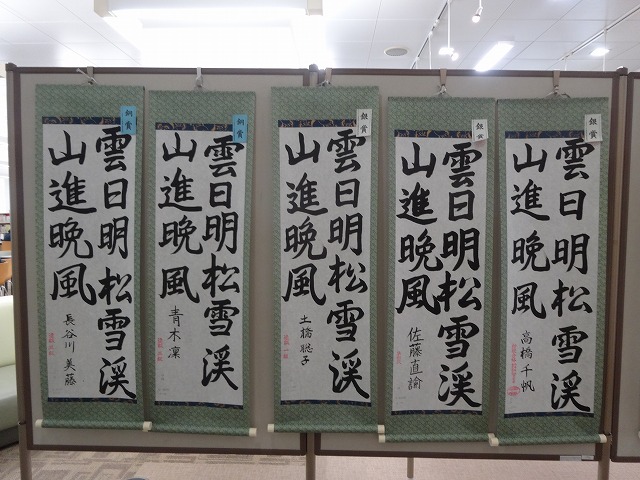 銀賞
雲日明松雪溪
山進晩風
高橋千帆
銀賞
雲日明松雪溪
山進晩風
佐藤直諭
銀賞
雲日明松雪溪
山進晩風
土橋聡子
銅賞
雲日明松雪溪
山進晩風
青木凜
銅賞
雲日明松雪溪
山進晩風
長谷川美藤